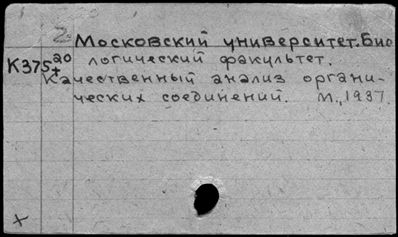 2
Московский университет. Био
логический факультет.
К375 20
+
Качественный анализ органи-
ческих соединений. М., 1937.
+